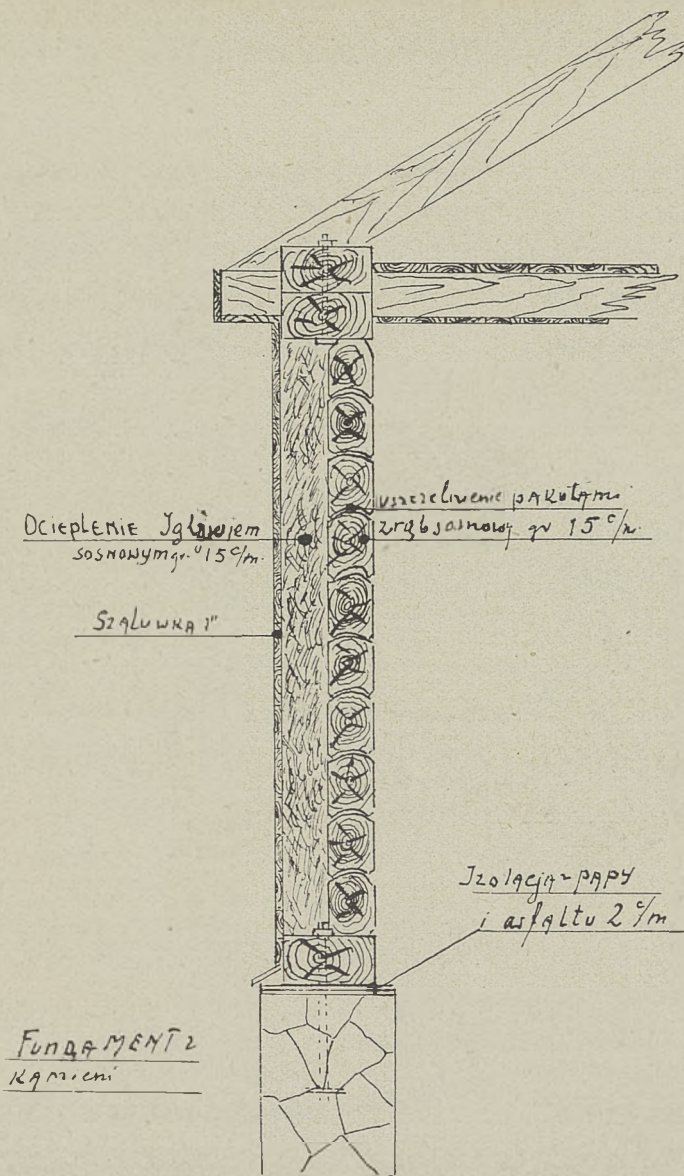 uszczelnienie pakułami
Ocieplenie Igliwiem
zrąb sosnowy gr 15 c/m.
sosnowym gr. 15 c/m.
Szalówka 1"
Izolacja z papy
i asfaltu 2 c/m
Fundament z
kamieni